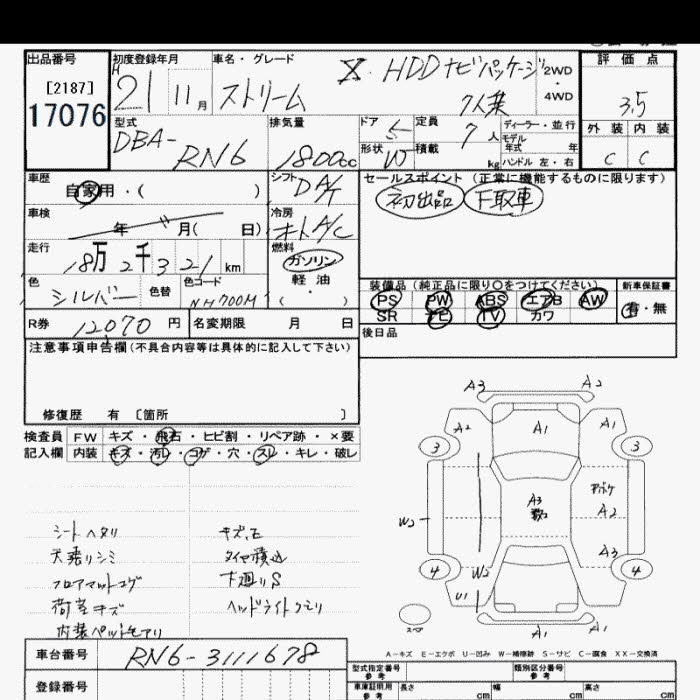 出品番号 初度登録年月 車名・グレード X.HDDナビパッケージ 2WD 評価点
[2187] H21 11月 ストリーム 7人乗 4WD 3.5
17076
型式 排気量 ドア 5 定員 7人 ディーラー・並行 外装 内装
DBA-RN6 1800cc 形状 W 積載 kg モデル年式 年 C C
ハンドル 左・右
車歴 自家用・( ) シフト DA/T セールスポイント (正常に機能するものに限ります)
初出品 下取車
車検 年 月( 日) 冷房 オートA/C
走行 18万2千321km 燃料 ガソリン 軽油・( )
色 シルバー 色替 色コード NH700M
装備品(純正品に限り○をつけてください) 新車保証書
PS PW ABS エアB AW 有・無
SR ナビ TV カワ
R券 12070円 名変期限 月 日 後日品
注意事項申告欄(不具合内容等は具体的に記入して下さい)
修復歴 有 [箇所 ]
検査員 FW キズ・飛石・ヒビ割・リペア跡・×要
記入欄 内装 キズ・汚レ・コゲ・穴・スレ・キレ・破レ
シートヘタリ キズ、ヱ
天張りシミ タイヤ積込
フロアマットコゲ 下廻りS
荷室キズ ヘッドライトクモリ
内装ペット毛アリ
A3 A2
A2 A1 A1
3 3
A3 アドボケ
W2 A2
A3
4 W2 4
U1
スペア A1 A1
A-キズ E-エクボ U-凹み W-補修跡 S-サビ C-腐食 XX-交換済
車台番号 RN6-3111678
登録番号
型式指定番号 参考 類別区分番号 参考
車庫証明用 参考 長さ cm 幅 cm 高さ cm